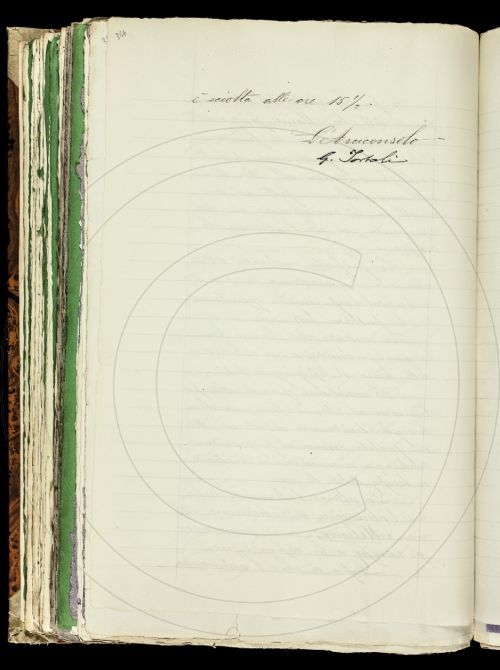 è sciolta alle ore 15 1/2.
L'Arciconsolo
G. Tortoli